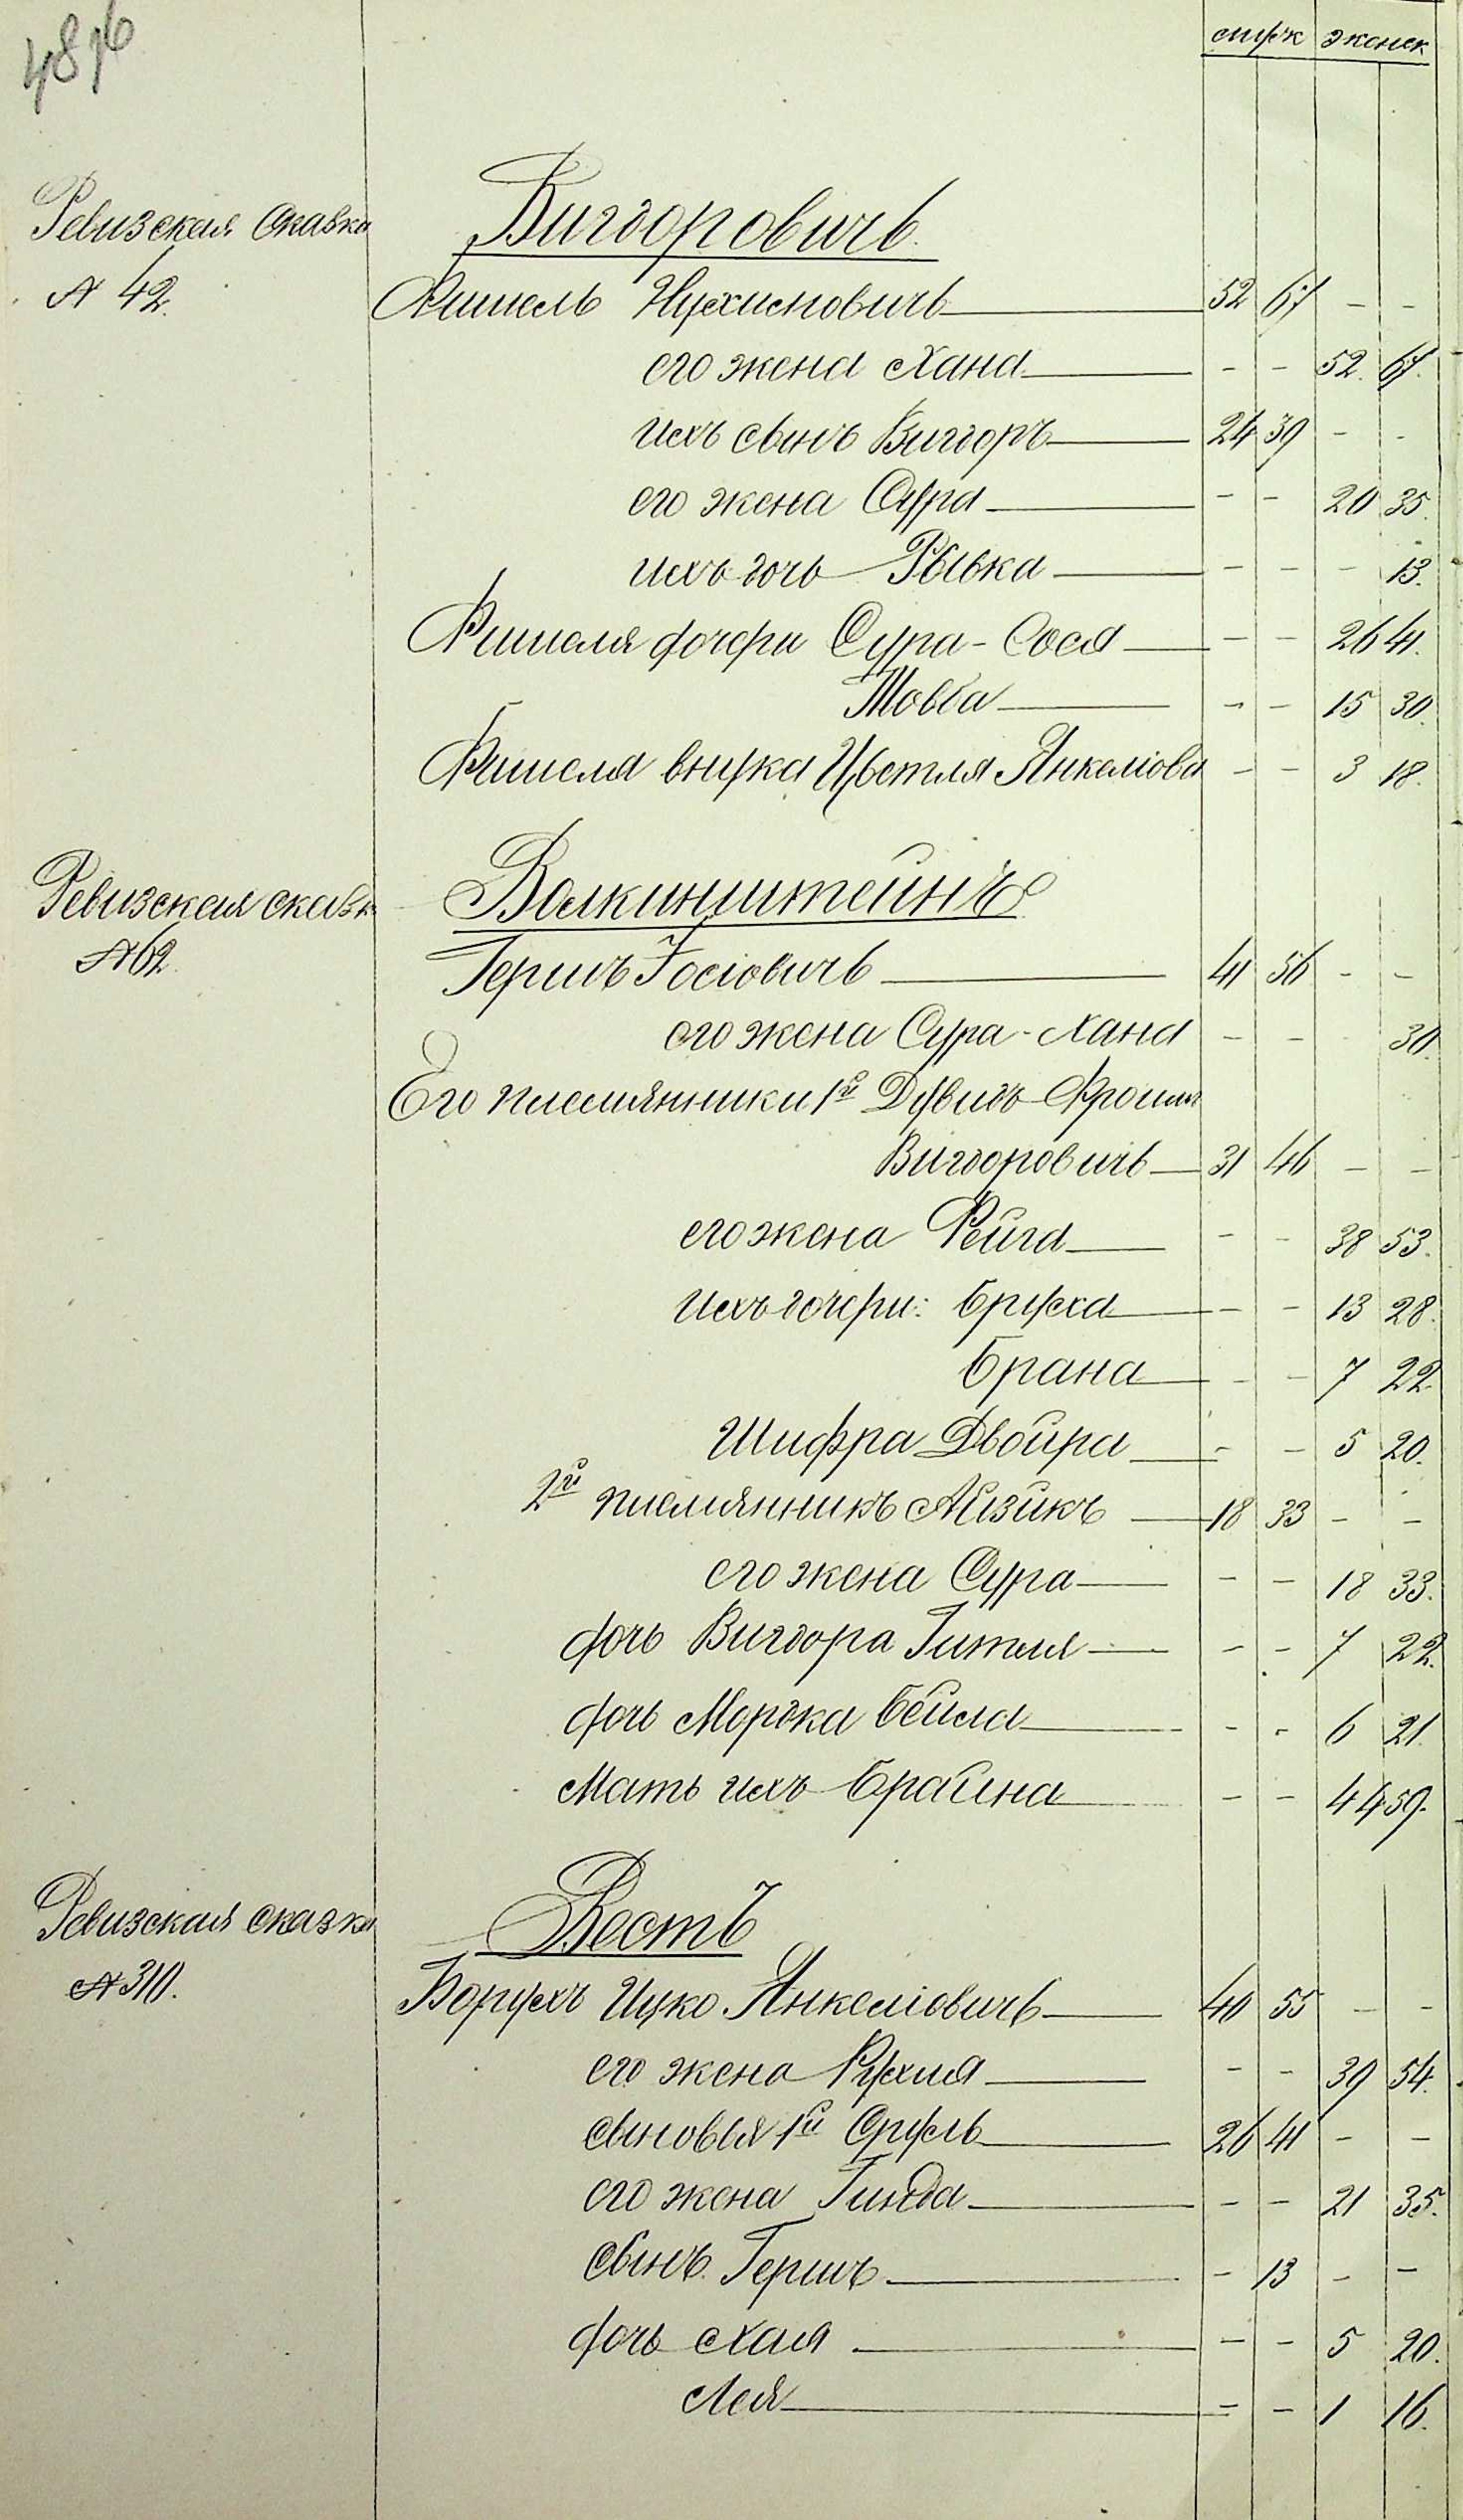 4876
мужск женск
Ревизская Сказка Вигдоровичъ
№ 42. Фишель Нухимовичъ 52 67 - -
его жена Хана - - 52. 67.
ихъ сынъ Вигдоръ 24 39 - -
его жена Сура - - 20 35.
ихъ дочь Рывка - - - 13.
Фишеля дочери Сура-Сося - - 26 41.
Товба - - 15 30.
Фишеля внучка Цветля Янкеліова - - 3 18.
Ревизская сказк Волкинштейнъ
№ 62. Гершъ Іосіовичъ 41 56 - -
его жена Сура-Хана - - - 30.
Его племянники 1й Дувидъ-Фроим
Вигдоровичъ 31 46 - -
его жена Фейга - - 38 53.
ихъ дочери: Бруха - - 13 28.
Брана - - 7 22.
Шифра Двойра - - 5 20.
2й племянникъ Айзикъ 18 33 - -
его жена Сура - - 18 33.
дочь Вигдора Гитля - - 7 22.
дочь Мордка Бейла - - 6 21.
Мать ихъ Брайна - - 44 59.
Ревизская сказка Вестъ
№ 310. Борухъ Ицко Янкеліовичъ 40 55 - -
его жена Рухля - - 39 54.
сыновья 1й Сруль 26 41 - -
его жена Гинда - - 21 35.
сынъ Гершъ - 13 - -
дочь Хая - - 5 20.
Лея - - 1 16.